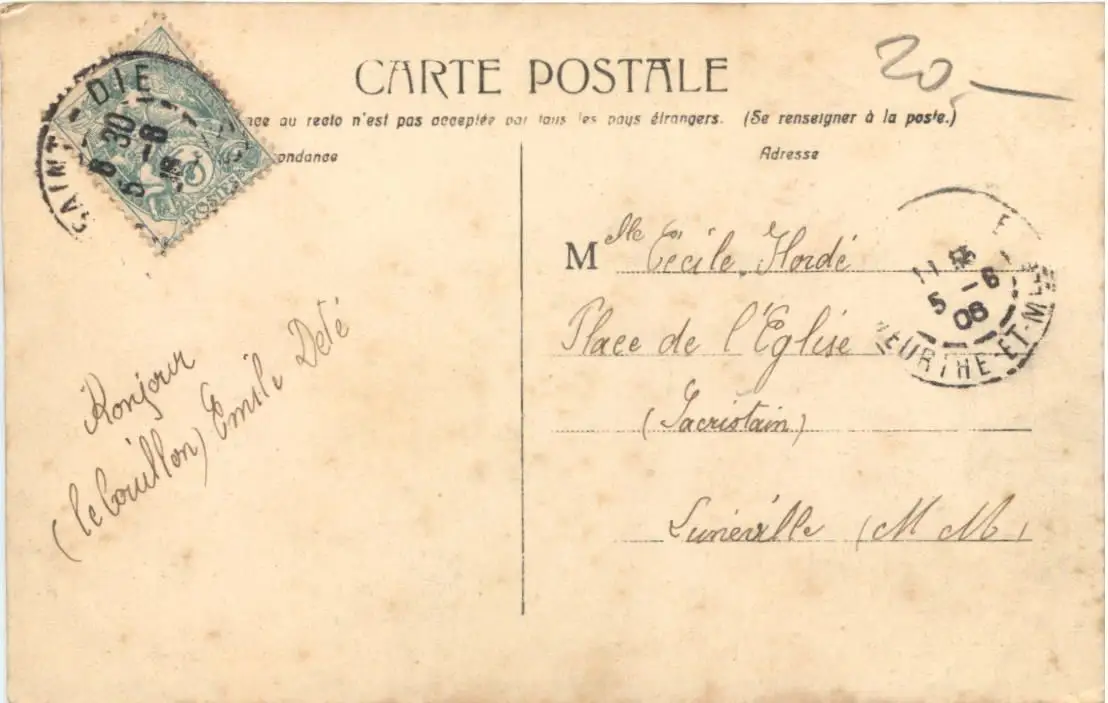 CARTE POSTALE
20,-
nce au recto n'est pas acceptée par tous les pays étrangers. (Se renseigner à la poste.)
ondance
Adresse
SAINT-DIE
6 30
5 -6
POSTES
Mlle Cécile Hordé
Place de l'Eglise
(Sacristain)
Lunéville (M M)
5 -6
06
MEURTHE-ET-M
Bonjour
(le couillon) Emile Deté